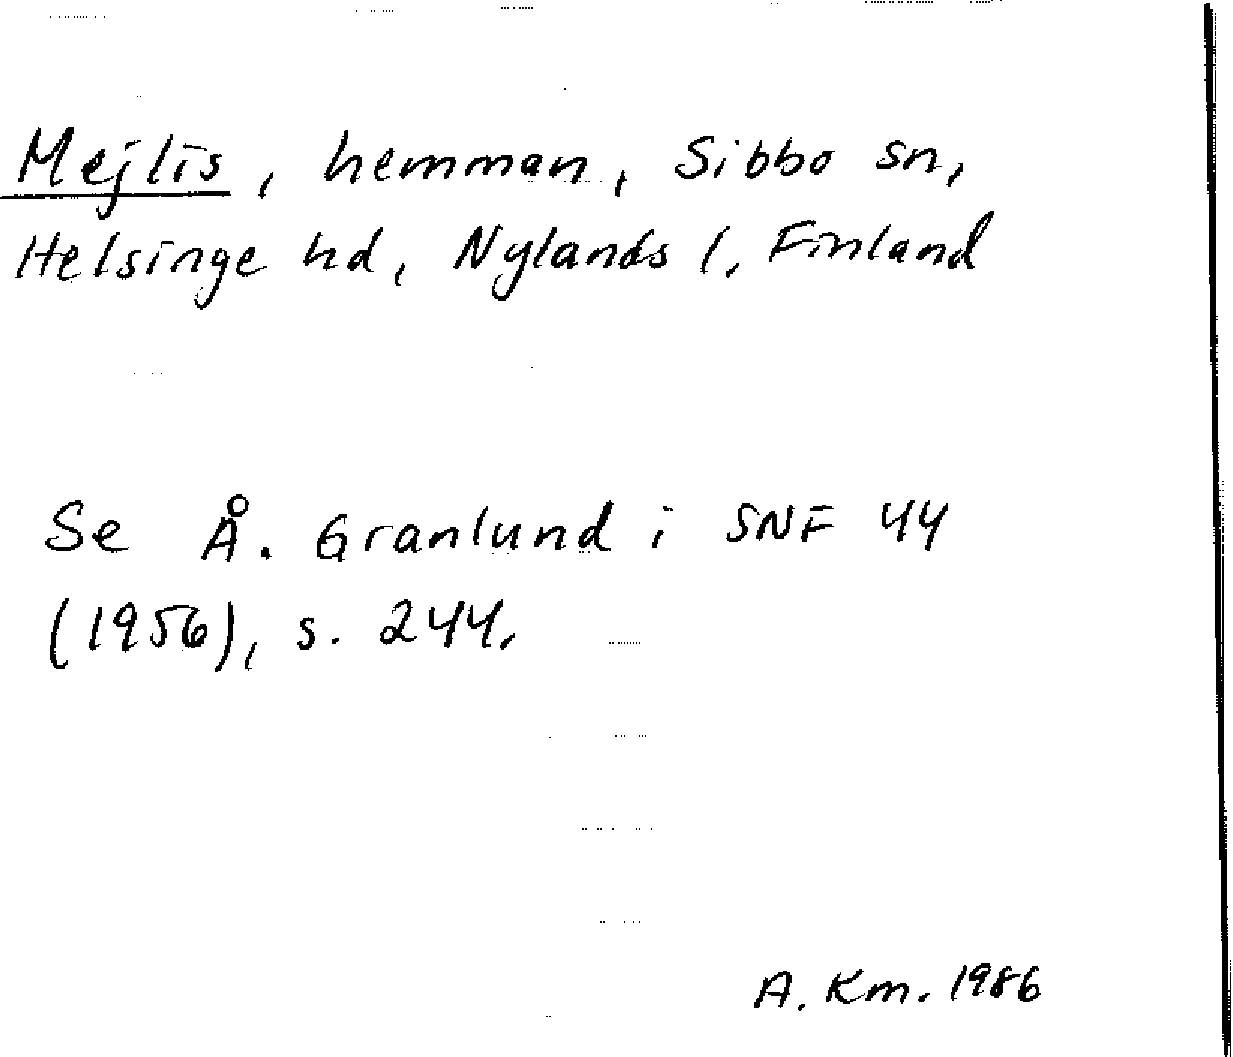 Mejlis, hemman, Sibbo sn,
Helsinge hd, Nylands l, Finland
Se Å. Granlund i SNF 44
(1956), s. 244.
A. Km. 1986